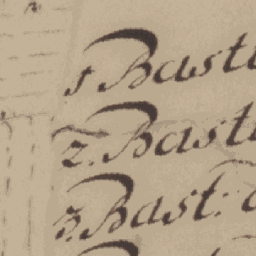 1 Bast
2. Bast
3. Bast: